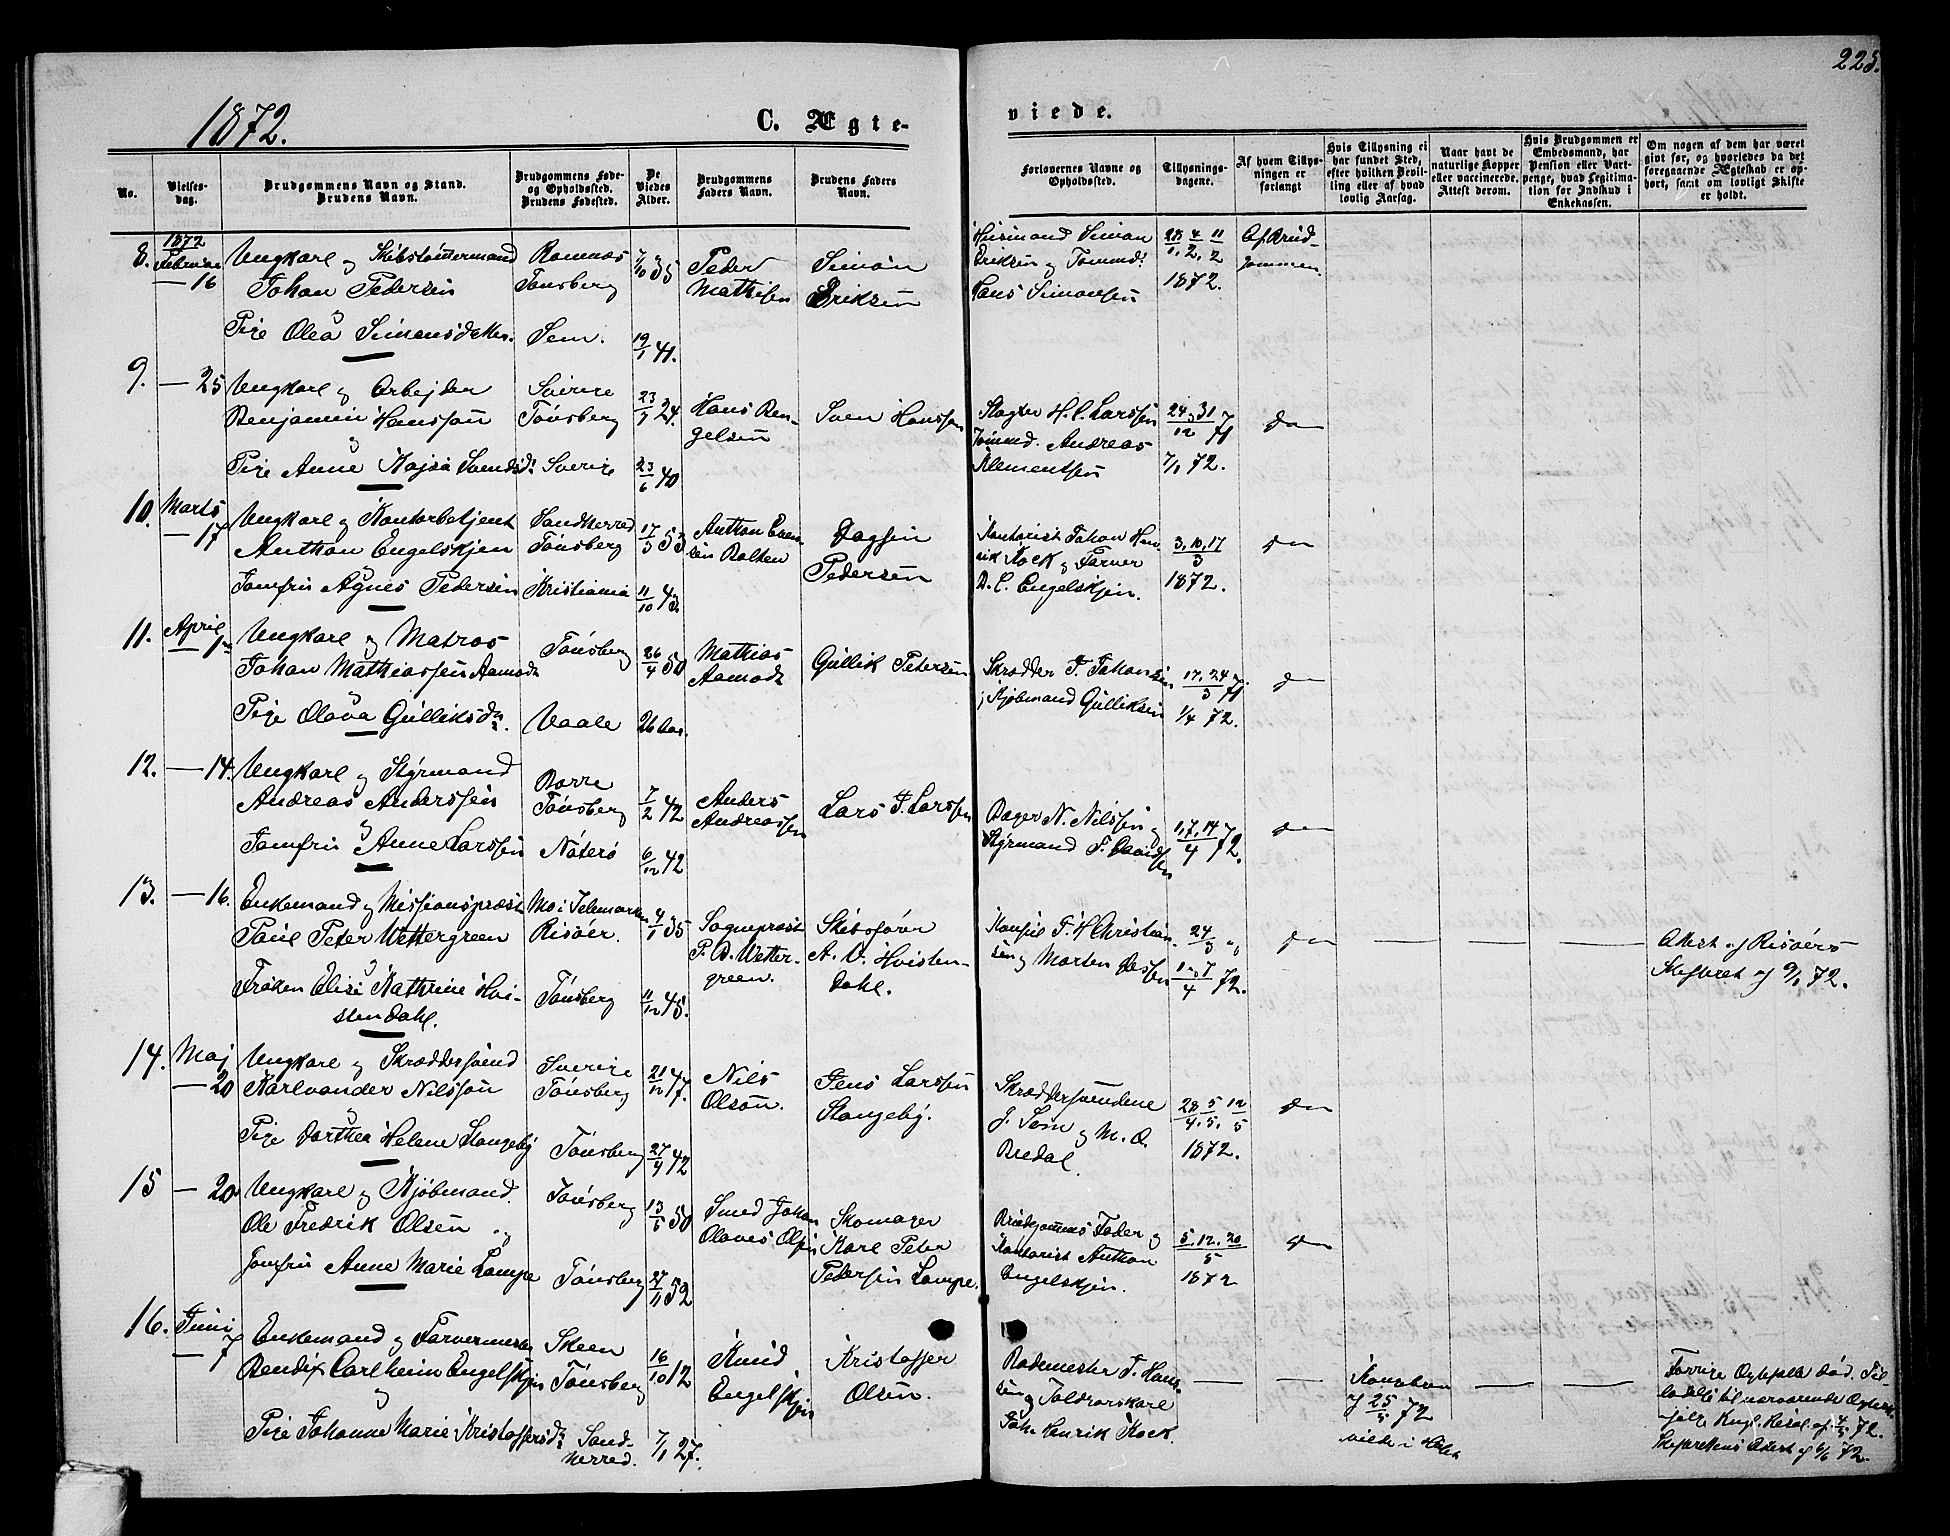 1872.
C. Ægte-
viede.
225.
No.
Vielses-dag.
Brudgommens Navn og Stand.
Brudens Navn.
Brudgommens Føde-
og Opholdssted.
Brudens Fødested.
De
Viedes
Alder.
Brudgommens
Faders Navn.
Brudens Faders
Navn.
Forlovernes Navne og
Opholdssted.
Tillysnings-
dagene.
Af hvem Tillys-
ningen er
forlangt
Hvis Tillysning ei
har fundet Sted,
efter hvilken Bevil-
ling eller af hvad
lovlig Aarsag.
Naar havt de
naturlige Kopper
eller vaccinerede.
Attest derom.
Hvis Brudgommen er
Embedsmand, har
Pension eller Vart-
penge, hvad Legitima-
tion for Indskud i
Enkekassen.
Om nogen af dem har været
givt før, og hvorledes da det
foregaaende Ægteskab er op-
hørt, samt om lovligt Skifte
er holdt.
8. 1872 Februar — 16
Ungkarl og Skibstømmermand
Johan Pedersen
og
Pige Olea Simensdatter.
Ramnæs
Tønsberg
Sem.
7/10 35
19/1 41.
Peder
Mathisen
Simon
Eriksen
Husmand Simon
Eriksen og Tømmd.
Hans Simonsen
28/1, 4/2, 11/2
1872.
Af Brud-
gommen.
9. — 25
Ungkarl og Arbejder
Benjamin Hansson
og
Pige Anne Kajsa Svendsd:
Sverige
Tønsberg
Sverige
23/1 24.
23/6 40
Hans Ben-
gelsen
Sven Hansson
Slagter H. C. Larssen
Tømmd. Andreas
Klementsen
24 og 31/12 71
7/1 72.
do
10. Marts — 17
Ungkarl og Kontorbetjent
Anthon Engelskjen
og
Jomfru Agnes Pedersen
Sandherred
Tønsberg
Kristiania
17/3 53
11/10 43.
Anthon Even-
sen Rolken
Dagfin
Pedersen
Kontorist Johan Hen-
rik Kock og Farver
B. C. Engelskjen.
3, 10, 17/3
1872.
do
11. April — 1ste
Ungkarl og Matros
Johan Mathiassen Aamodt
og
Pige Olava Gulliksd:
Tønsberg
Vaale
26/4 50
26 Aar.
Mathias
Aamodt
Gullik Petersen
Skrædder J. Johansen
og Kjøbmand Gulliksen
17, 24/3 71
1/4 72.
do
12. — 14.
Ungkarl og Styrmand
Andreas Anderssen
og
Jomfru Anne Larssen
Borre
Tønsberg
Nøterø
7/2 42
6/12 42
Anders
Andreassen
Lars J. Larssen
Bager N. Nilssen og
Styrmand F. Davidsen
1, 7, 14/4 72.
do
13. — 16.
Enkemand og Missionspræst
Paul Peter Wettergreen
og
Frøken Elisi Kathrine Hvi-
stendahl.
Mo i Telemarken
Risøer.
Tønsberg
4/1 35
11/12 45.
Sognepræst
P. B. Wetter-
green.
Skibsfører
A. O. Hvisten-
dahl.
Konsul F. H Christian-
sen og Morten Jessen
24/3 og
1 og 7/4 72.
do
— — —
Attest af Risøers
Skifteret af 9/1 72.
14. Maj — 20
Ungkarl og Skræddersvend
Karlvander Nilsson
og
Pige Dorthea Helene Stangeby
Sverige
Tønsberg
Tønsberg
21/12 47.
27/4 42
Nils
Olson.
Jens Larssen
Stangeby.
Skræddersvendene
J. Svin og M. O.
Bredal.
28/4, 5/5, 12/5
1872.
do
15 — 20
Ungkarl og Kjøbmand
Ole Fredrik Olsen og
Jomfru Anne Marie Lampe
Tønsberg
Tønsberg
13/5 50
27/11 52
Smed Johan
Olaves Olsen
Skomager
Karl Peter
Pedersen Lampe.
Brudgommens Fader og
Kontorist Anthon
Engelskjen.
5, 12, 20/5
1872
do
16. Juni — 7
Enkemand og Farvermester
Bendix Carl heim Engelskjen
og
Pige Johanne Marie Kristoffersd:
Skeen
Tønsberg
Sand-
herred.
16/10 12
7/1 27.
Knud
Engelskjen
Kristoffer
Olsen.
Rodemester J. Hans-
sen og Toldrorskarl
Joh. Henrik Kock.
— —
Kongebrev
af 25/5 72
viede i Huset
— —
Forrige Ægtefelle død. Til-
ladelse til nærværende Ægtesk.
ifølge Kngl. Resol. af 4/5 72.
Skifterettens Attest af 6/6 72.